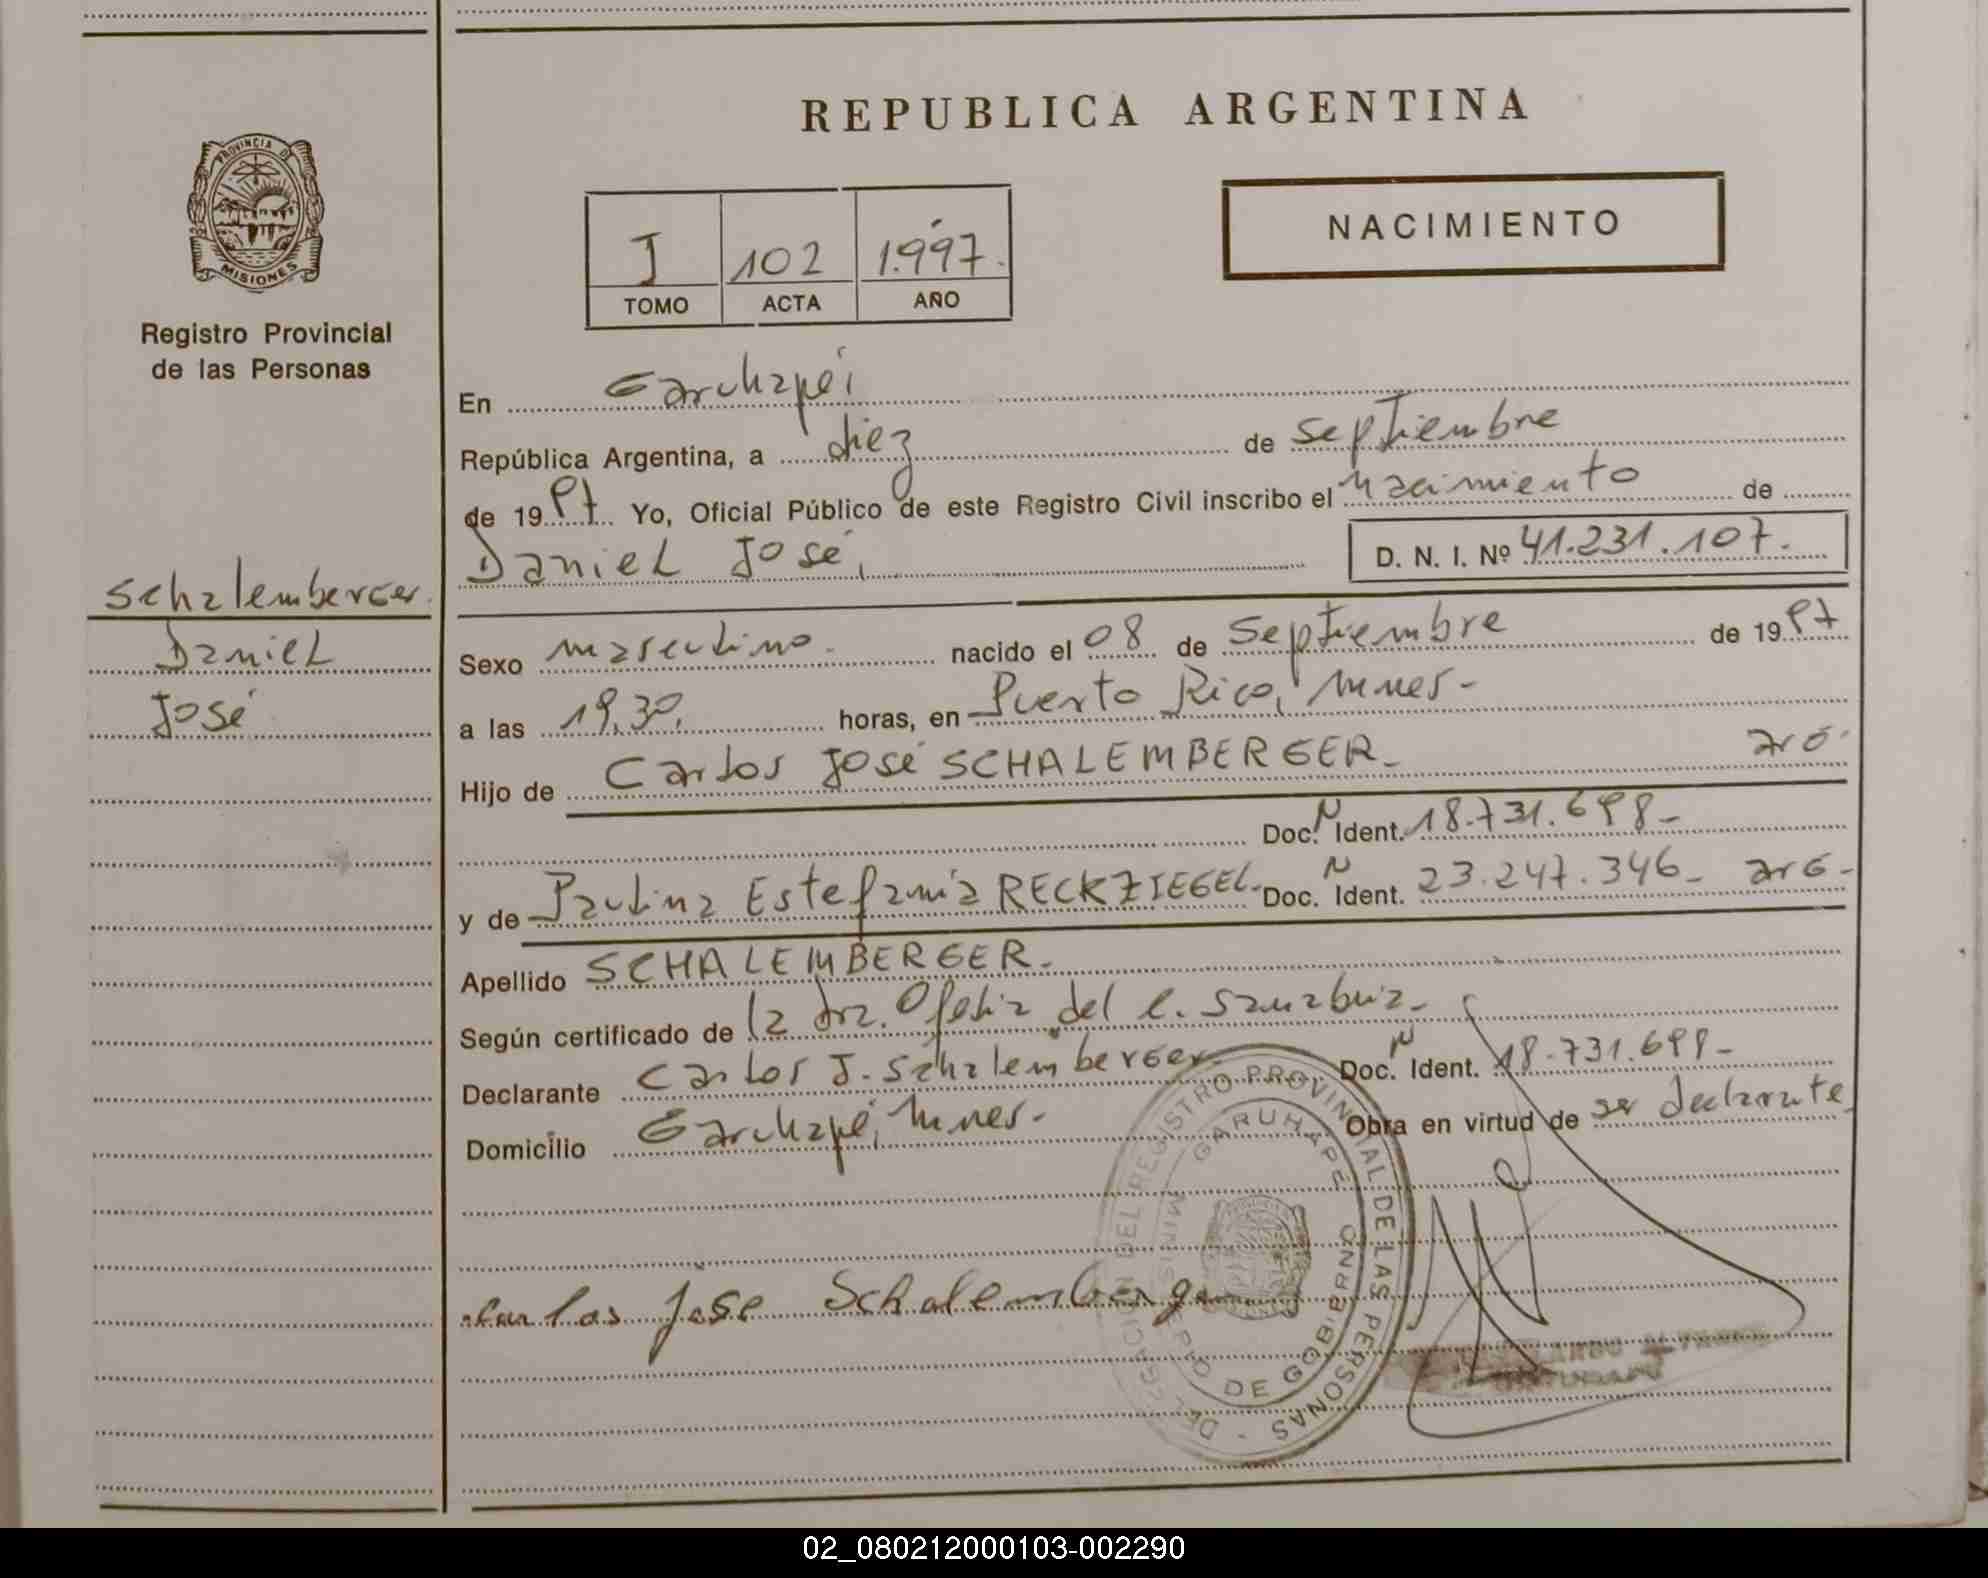 REPUBLICA ARGENTINA
PROVINCIA DE
MISIONES
Registro Provincial
de las Personas
NACIMIENTO
I 102 1.997.
TOMO ACTA AÑO
En Garuhapé,
República Argentina, a diez de septiembre
de 1997. Yo, Oficial Público de este Registro Civil inscribo el nacimiento de
Daniel José, D. N. I. Nº 41.231.107.
Schalemberger.
Daniel
José
Sexo masculino. nacido el 08 de Septiembre de 1997
a las 19,30, horas, en Puerto Rico, Mnes-
Hijo de Carlos José SCHALEMBERGER- arg.
Doc. N Ident. 18.731.698-
y de Paulina Estefania RECKZIEGEL- Doc. N Ident. 23.247.346- arg-
Apellido SCHALEMBERGER-
Según certificado de la dra. Ofelia del C.
Declarante Carlos J. Schalemberger- Doc. N Ident. 18.731.698-
Domicilio Garuhapé, Mnes- Obra en virtud de ser declarante
Carlos Jose Schalemberger
DELEGACION DEL REGISTRO PROVINCIAL DE LAS PERSONAS
GARUHAPE
MINISTERIO DE GOBIERNO
02_080212000103-002290